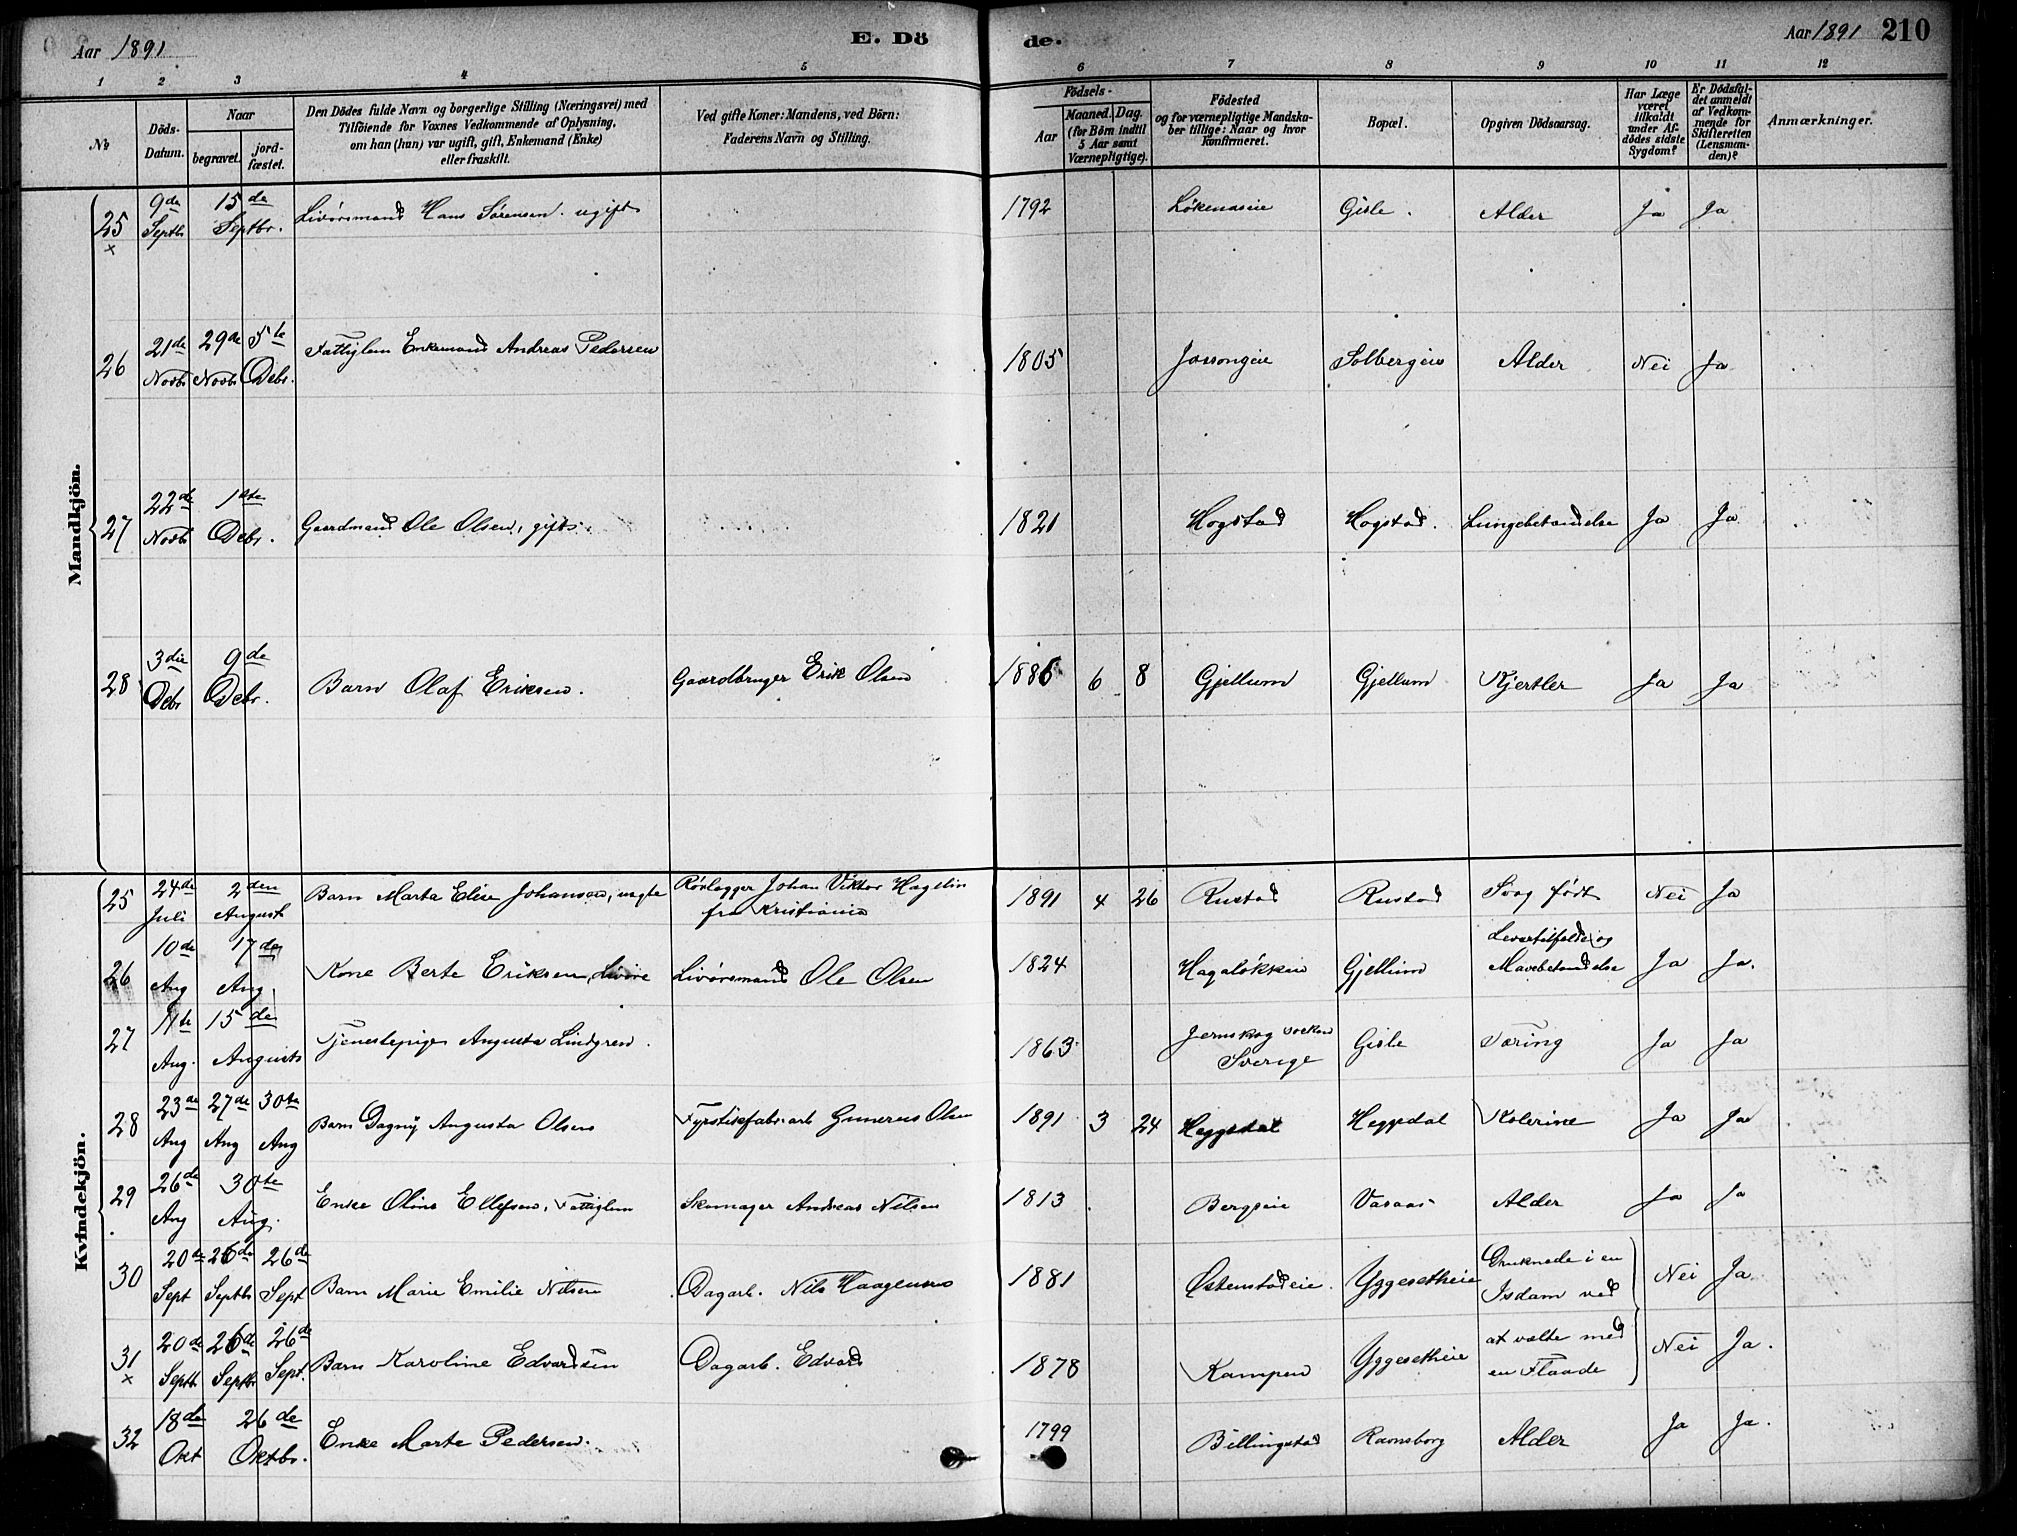 Aar 1891
E. Dö
de.
Aar 1891 210
1 2 3 4 5 6 7 8 9 10 11 12
No
Döds-
Datum.
Naar
begravet.
jord-
fæstet.
Den Dödes fulde Navn og borgerlige Stilling (Næringsvei) med
Tilföiende for Voxnes Vedkommende af Oplysning,
om han (hun) var ugift, gift, Enkemand (Enke)
eller fraskilt.
Ved gifte Koner: Mandens, ved Börn:
Faderens Navn og Stilling.
Födsels-
Aar
Maaned. Dag.
(for Börn indtil
5 Aar samt
Værnepligtige).
Födested
og for værnepligtige Mandska-
ber tillige: Naar og hvor
konfirmeret.
Bopæl.
Opgiven Dödsaarsag.
Har Læge
været
tilkaldt
under Af-
dödes sidste
Sygdom?
Er Dödsfal-
det anmeldt
af Vedkom-
mende for
Skifteretten
(Lensman-
den)?
Anmærkninger.
Mandkjön.
25 9de Septbr 15de Septbr. Livörsmand Hans Sörensen. ugift 1792 Lökenaseie Gisle. Alder Ja Ja
x
26 21de Novbr 29de Novbr 5te Debr. Fattiglem Enkemand Andreas Pedersen 1805 Solbergeie Alder Nei Ja
27 22de Novbr 1ste Debr. Gaardmand Ole Olsen, gift. 1821 Hogstad Hogstad. Lungebetændelse Ja Ja
28 3die Debr 9de Debr. Barn Olaf Eriksen. Gaardbruger Erik Olsen 1886 6 8 Gjellum Gjellum Kjertler Ja Ja
Kvindekjön.
25 24de Juli 2den August Barn Marta Elise Johansen, uægte Rörlegger Johan Viktor Hagelin
fra Kristiania 1891 4 26 Rustad Rustad Svag födt Nei Ja
26 10de Ang 17de Ang. Kone Berte Eriksen, Livöre Livörsmand Ole Olsen 1824 Hagalökken Gjellum Levertilfælde og
Mavebetændelse Ja Ja.
27 11te Ang. 15de Angust Tjenestepige Angusta Lindgren. 1863 Jernskog Socken
Sverige Gisle Tæring Ja Ja
28 23de Ang 27de Ang 30te Ang Barn Dagny Angusta Olsen Fyrstikfabr.arb Gunerus Olsen 1891 3 24 Heggedal Heggedal Kolerine Ja Ja
29 26de Ang 30te Aug. Enke Oline Ellefsen, Fattiglem Skomager Andreas Nilsen 1813 Bergseie Vasaas Alder Ja Ja
30 20de Sept 26de Septbr 26de Sept Barn Marie Emilie Nilsen Dagarb. Nils Haagensen 1881 Östenstadeie. Yggesetheie Druknede i en
Isdam ved Nei Ja
31 20de Septbr 26de Septbr 26de Sept. Barn Karoline Edvardsen Dagarb. Edvard 1878 Kampen Yggesetheie at vælte med
en Flaade Nei Ja.
x
32 18de Okt 26de Oktbr. Enke Marte Pedersen. 1799 Billingstad Ravnsborg Alder Ja Ja.